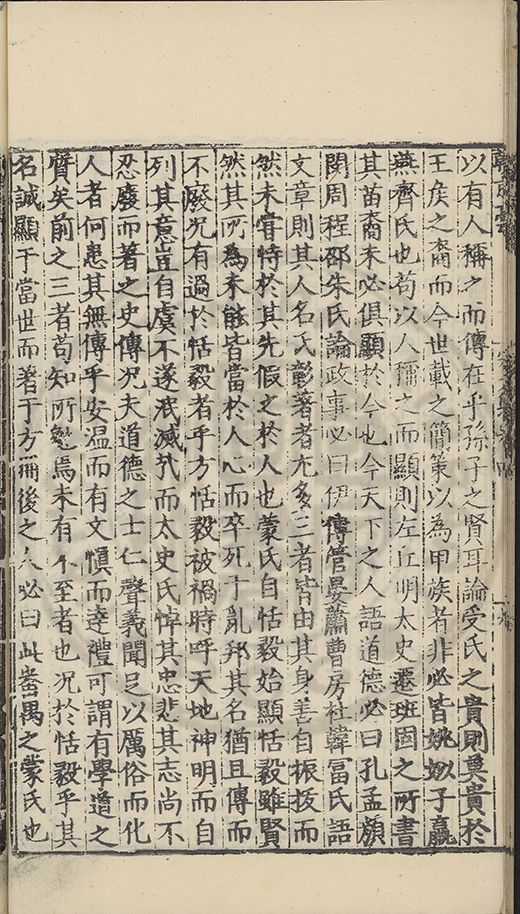 以有人稱之而傳在乎孫子之賢耳論受氏之貴則莫貴於
王侯之裔而今世載之簡策以為甲族者非必皆姚姒子嬴
燕齊氏也苟以人稱之而顯則左丘明太史遷班固之所書
其苗裔未必俱顯於今也今天下之人語道德必曰孔孟顏
閔周程邵朱氏論政事必曰伊傅管晏蕭曹房杜韓冨氏語
文章則其人名氏彰著者尤多三者皆由其身善自振拔而
然未甞恃於其先假之於人也蒙氏自恬毅始顯恬毅雖賢
然其所為未能皆當於人心而卒死于亂邦其名猶且傳而
不廢况有過於恬毅者乎方恬毅被禍時呼天地神明而自
列其意豈自虞不遂泯滅㢤而太史氏悼其忠悲其志尚不
忍廢而著之史傳况夫道德之士仁聲義聞足以厲俗而化
人者何患其無傳乎安温而有文愼而達禮可謂有學道之
質矣前之三者苟知所勉焉未有不至者也况於恬毅乎其
名誠顯于當世而著于方冊後之人必曰此番禺之蒙氏也